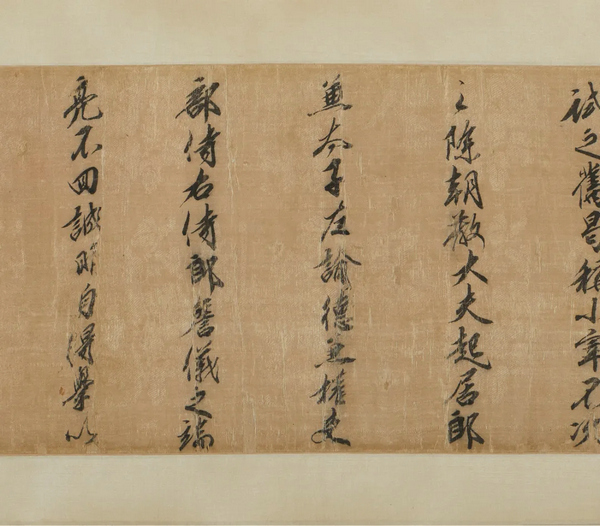 試之曷稱小宰不次
之除朝散大夫起居郎
兼太子左諭德兼權吏
部侍右侍郎詹儀之端
亮不回誠明自得學以